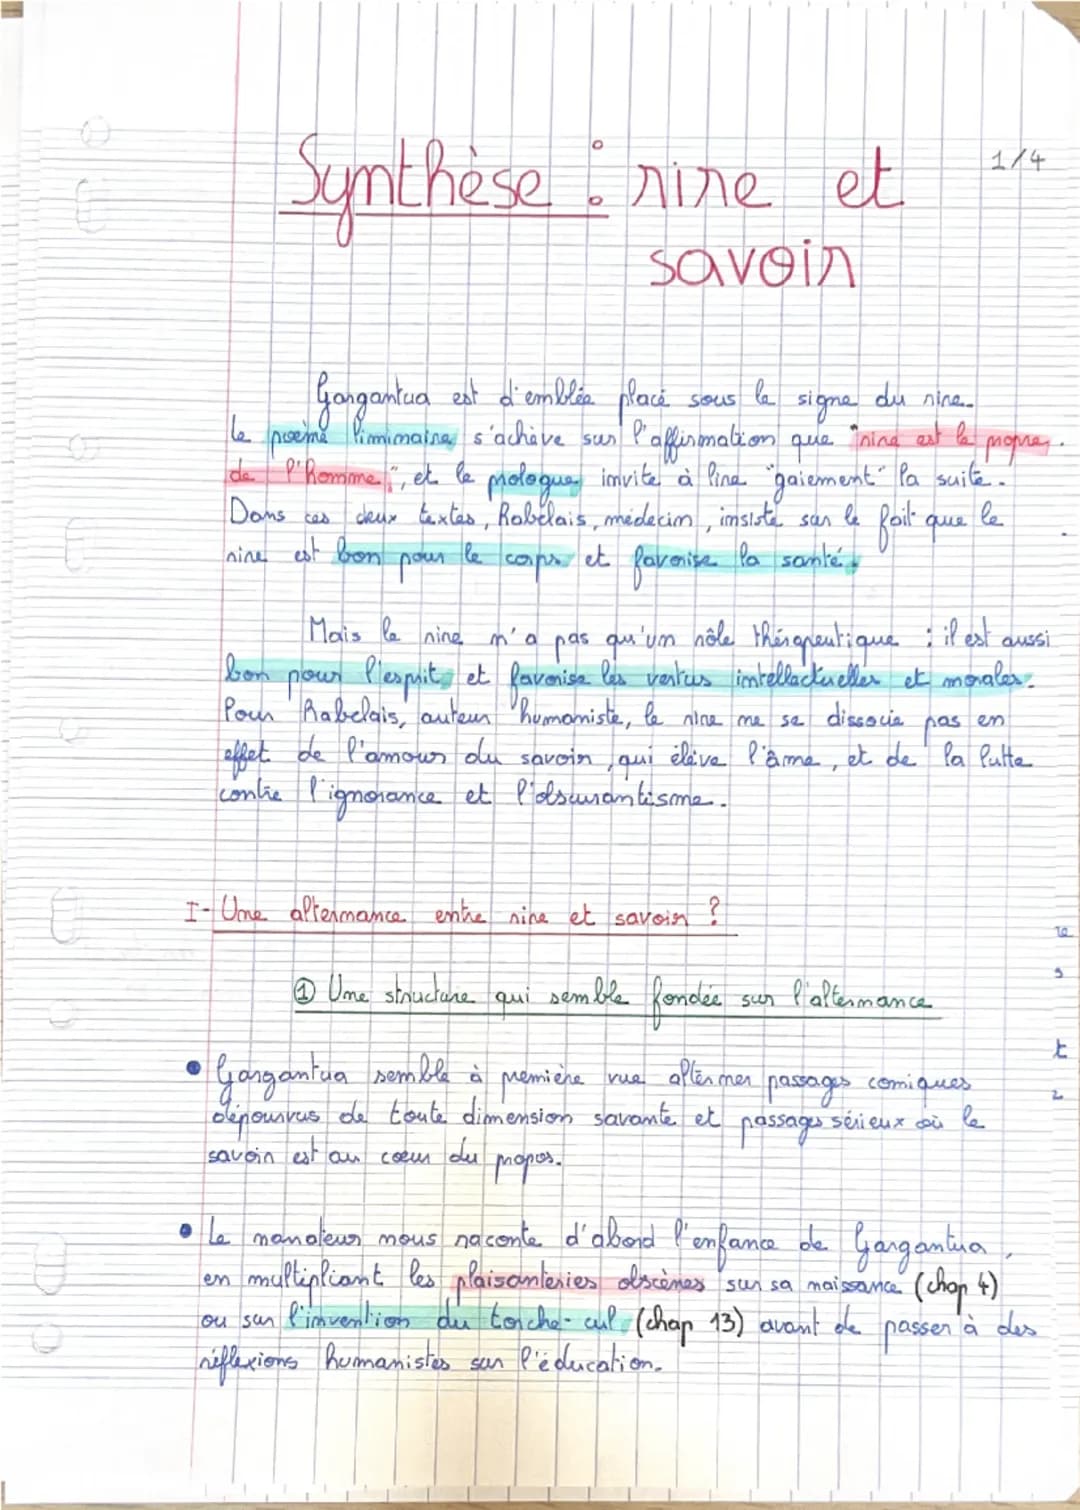 1/4
Synthèse : rire et
savoir
Gargantua est d'emblée placé sous le signe du rire.
Le poème liminaire s'achève sur l'affirmation que "rire est le propre
de l'homme", et le prologue invite à lire "gaiement" la suite.
Dans ces deux textes, Rabelais, médecin, insiste sur le fait que le
rire est bon pour le corps et favorise la santé.
Mais le rire n'a pas qu'un rôle thérapeutique : il est aussi
bon pour l'esprit, et favorise les vertus intellectuelles et morales.
Pour Rabelais, auteur humaniste, le rire ne se dissocie pas en
effet de l'amour du savoir, qui élève l'âme, et de la lutte
contre l'ignorance et l'obscurantisme.
I- Une alternance entre rire et savoir ?
① Une structure qui semble fondée sur l'alternance
• Gargantua semble à première vue alterner passages comiques
dépourvus de toute dimension savante et passages sérieux où le
savoir est au coeur du propos.
• Le narrateur nous raconte d'abord l'enfance de Gargantua,
en multipliant les plaisanteries obscènes sur sa naissance (chap 4)
ou sur l'invention du torche-cul (chap 13) avant de passer à des
réflexions humanistes sur l'éducation.